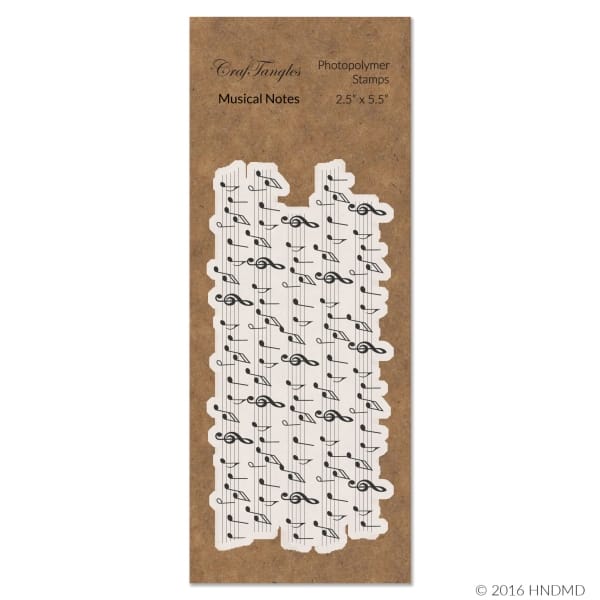 CrafTangles
Musical Notes
Photopolymer
Stamps
2.5" x 5.5"
© 2016 HNDMD